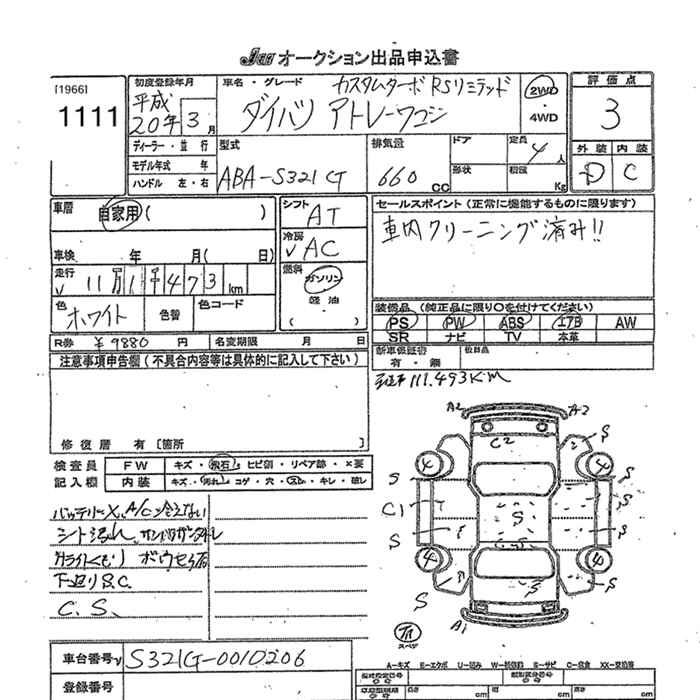 JU オークション出品申込書
[1966]
1111
初度登録年月
平成
20年 3月
車名・グレード
カスタムターボRSリミテッド
ダイハツ アトレーワゴン
2WD
・
4WD
評価点
3
外装 内装
D C
ディーラー・並行
モデル年式 年
ハンドル 左・右
型式
ABA-S321G
排気量
660 cc
ドア
形状
定員
4人
積載
Kg
車歴
自家用( )
車検 年 月( 日)
走行
11万1千473km
色
ホワイト
色替
色コード
シフト
AT
冷房
AC
燃料
ガソリン
軽油
( )
セールスポイント(正常に機能するものに限ります)
車内クリーニング済み!!
装備品(純正品に限り○を付けてください)
PS PW ABS エアB AW
SR ナビ TV 本革
R券 ¥9880 円
名変期限 月 日
新車保証書
有・無
注意事項申告欄(不具合内容等は具体的に記入して下さい)
修復歴 有 [箇所 ]
111.493K.m
検査員
記入欄
FW キズ・飛石・ヒビ割・リペア跡・×要
内装 キズ・汚れ・コゲ・穴・スレ・キレ・破レ
バッテリーX、A/C冷えない
シート汚れ、
下廻りS.C.
C.S、
A2 A2
C2
S
4 4
S S
C1 S
S S
S
4 4
S S
S
A1
スペア
車台番号 S321G-0010206
登録番号
A-キズ E-エクボ U-凹み W-補修跡 S-サビ C-腐食 XX-交換済
長さ cm
幅 cm
高さ cm